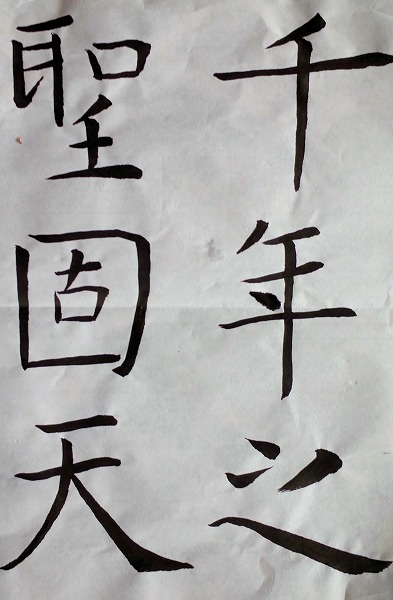 千年之
聖固天